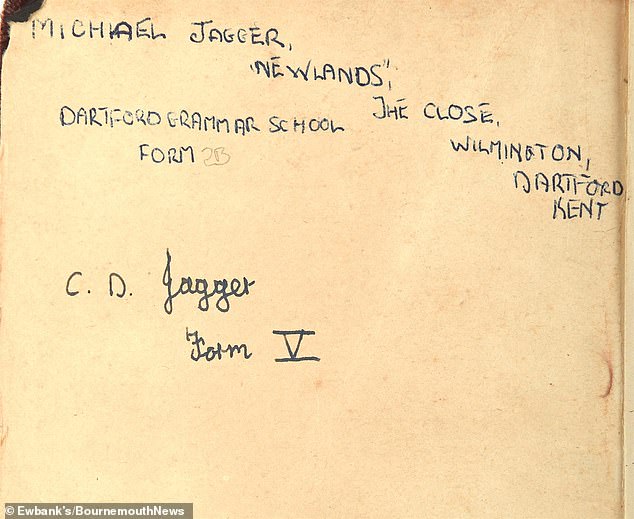 MICHAEL JAGGER,
"NEWLANDS",
THE CLOSE,
DARTFORD GRAMMAR SCHOOL
WILMINGTON,
FORM 2B
DARTFORD
KENT
C. D. Jagger
Form V
© Ewbank's/BournemouthNews